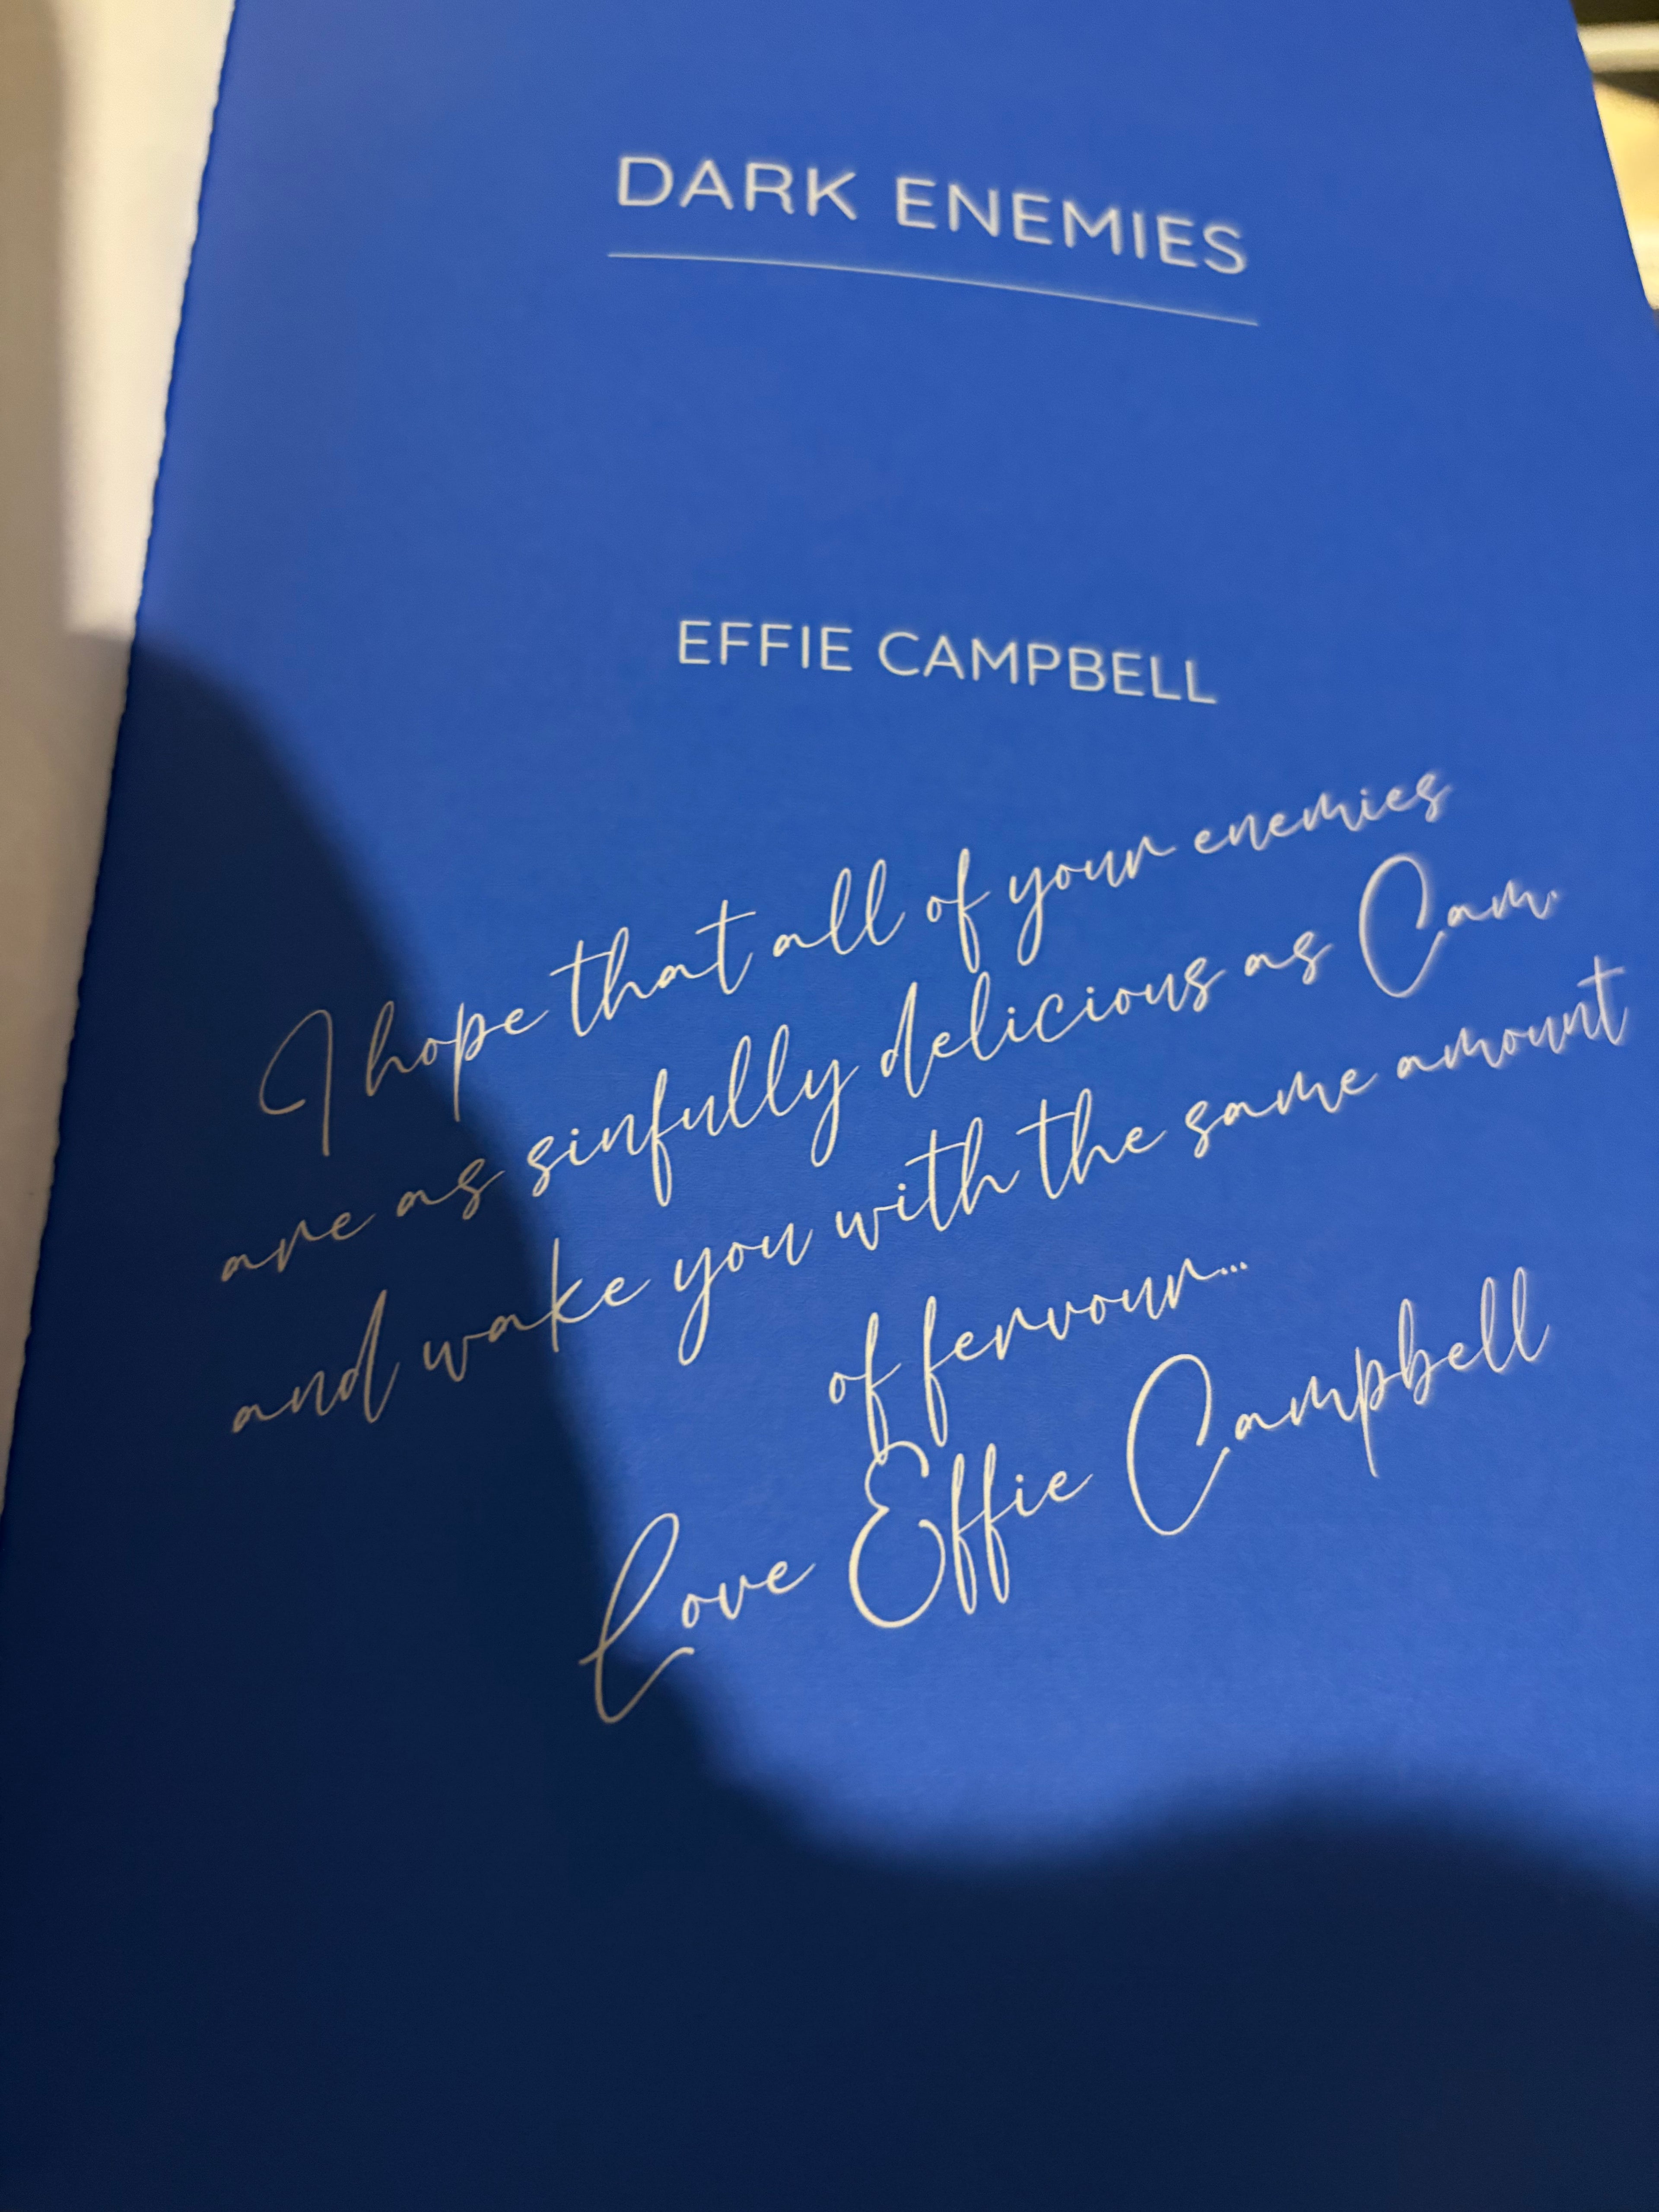 DARK ENEMIES
EFFIE CAMPBELL
I hope that all of your enemies
are as sinfully delicious as Cam.
and wake you with the same amount
of fervour...
Love Effie Campbell